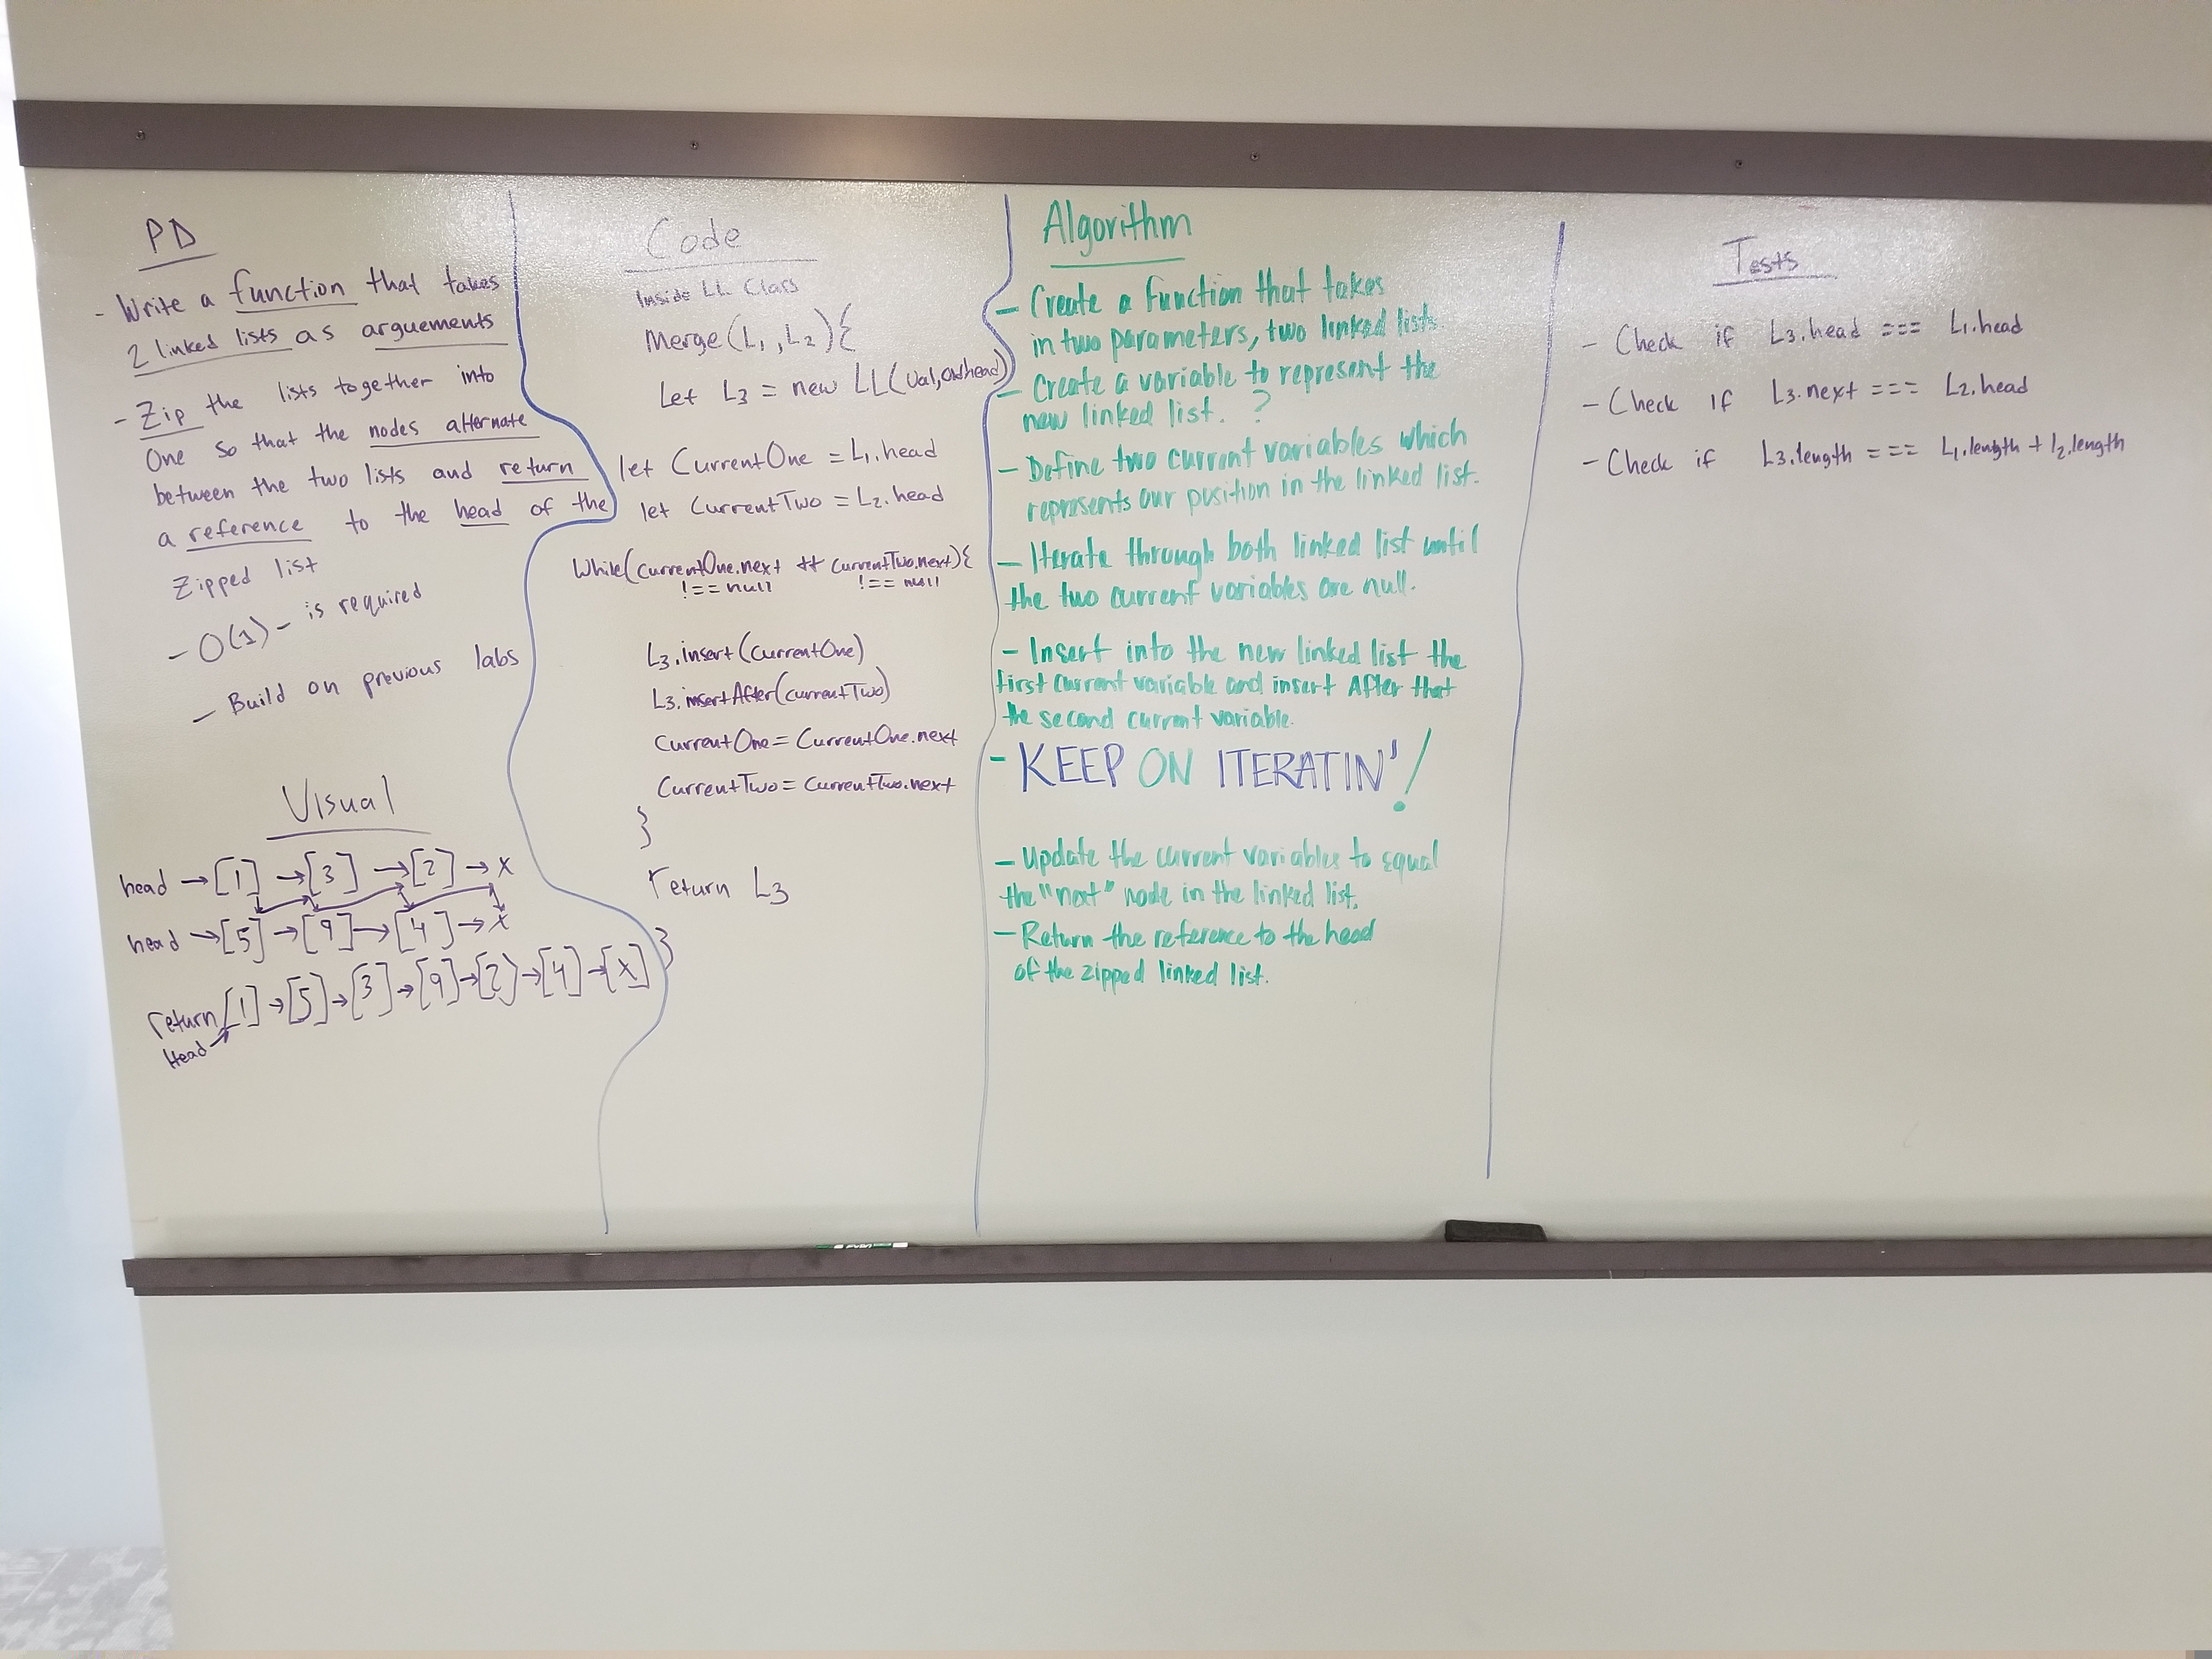 PD
- Write a function that takes
2 linked lists as arguements
- Zip the lists together into
One so that the nodes alternate
between the two lists and return
a reference to the head of the
Zipped list
- O(1) - is required
- Build on previous labs
Visual
head → [1] → [3] → [2] → X
head → [5] → [9] → [4] → X
return [1] → [5] → [3] → [9] → [2] → [4] → [X]
Head
Code
Inside LL Class
Merge(L1, L2){
Let L3 = new LL(
let CurrentOne = L1.head
let CurrentTwo = L2.head
While(currentOne.next && currentTwo.next){
!== null !== null
L3.insert(currentOne)
L3.insertAfter(currentTwo)
CurrentOne = CurrentOne.next
CurrentTwo = CurrentTwo.next
}
return L3
}
Algorithm
- Create a function that takes
in two parameters, two linked lists.
- Create a variable to represent the
new linked list. ?
- Define two current variables which
represents our position in the linked list.
- Iterate through both linked list until
the two current variables are null.
- Insert into the new linked list the
first current variable and insert After that
the second current variable.
- KEEP ON ITERATIN'!
- Update the current variables to equal
the "next" node in the linked list.
- Return the reference to the head
of the zipped linked list.
Tests
- Check if L3.head === L1.head
- Check if L3.next === L2.head
- Check if L3.length === L1.length + L2.length